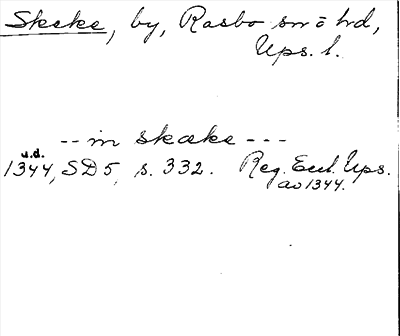 Skeke, by, Rasbo sn o hd,
Ups. l.
-- in skeke ---
u.d.
1344, SD 5, s. 332. Reg. Eccl. Ups.
av 1344.